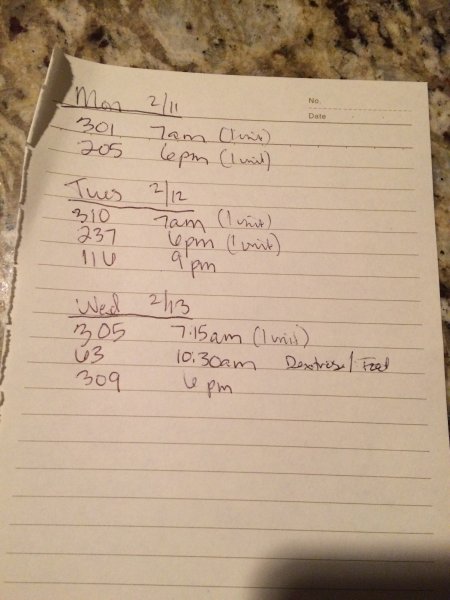 No.
Date
Mon 2/11
301 7am (1 unit)
205 6pm (1 unit)
Tues 2/12
310 7am (1 unit)
237 6pm (1 unit)
116 9pm
Wed 2/13
305 7:15am (1 unit)
63 10:30am Dextrose/Food
309 6pm